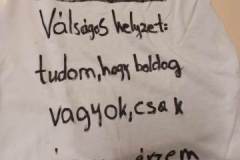 Válságos helyzet:
tudom, hogy boldog
vagyok, csak